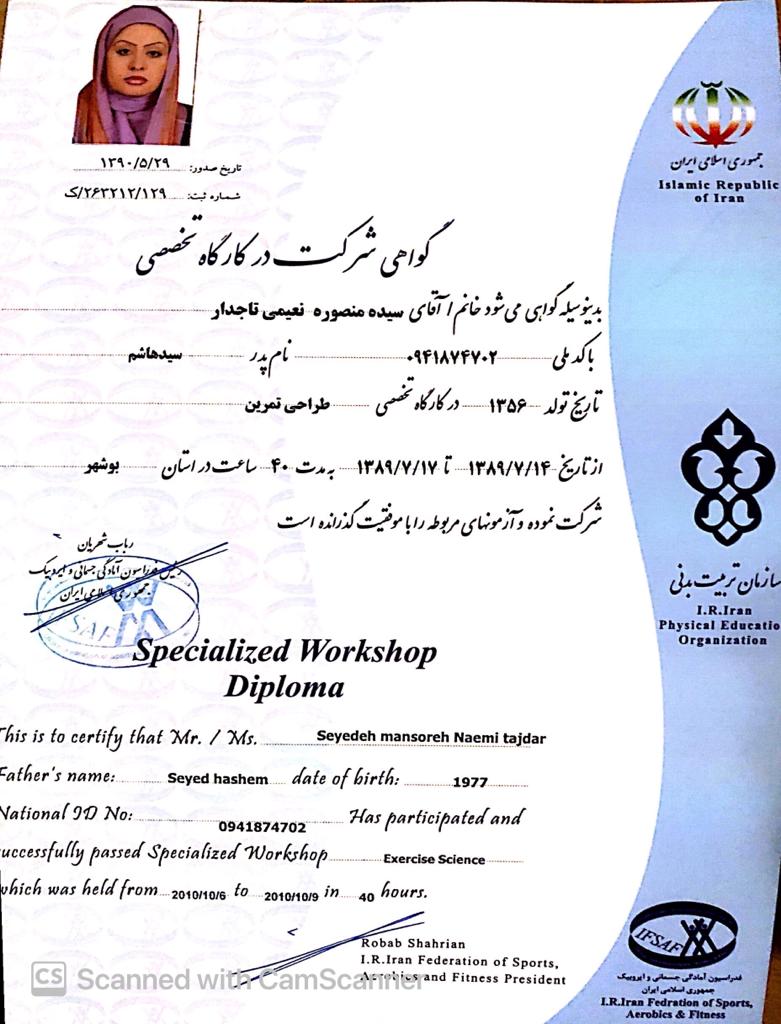 تاریخ صدور: ۱۳۹۰/۵/۲۹
شماره ثبت: ۲۶۳۲۱۲/۱۲۹/ک
جمهوری اسلامی ایران
Islamic Republic
of Iran
گواهی شرکت در کارگاه تخصصی
بدینوسیله گواهی می شود خانم / آقای سیده منصوره نعیمی تاجدار
با کد ملی ۰۹۴۱۸۷۴۷۰۲ نام پدر سیدهاشم
تاریخ تولد ۱۳۵۶ در کارگاه تخصصی طراحی تمرین
از تاریخ ۱۳۸۹/۷/۱۴ تا ۱۳۸۹/۷/۱۷ به مدت ۴۰ ساعت در استان بوشهر
شرکت نموده و آزمونهای مربوطه را با موفقیت گذرانده است
رباب شهریان
رئیس فدراسیون آمادگی جسمانی و ایروبیک
جمهوری اسلامی ایران
سازمان تربیت بدنی
I.R.Iran
Physical Educatio
Organization
Specialized Workshop
Diploma
This is to certify that Mr. / Ms. Seyedeh mansoreh Naemi tajdar
Father's name: Seyed hashem date of birth: 1977
National ID No: 0941874702 Has participated and
uccessfully passed Specialized Workshop Exercise Science
which was held from 2010/10/6 to 2010/10/9 in 40 hours.
Robab Shahrian
I.R.Iran Federation of Sports,
Aerobics and Fitness President
IFSAF
فدراسیون آمادگی جسمانی و ایروبیک
جمهوری اسلامی ایران
I.R.Iran Fedration of Sports,
Aerobics & Fitness
CS Scanned with CamScanner